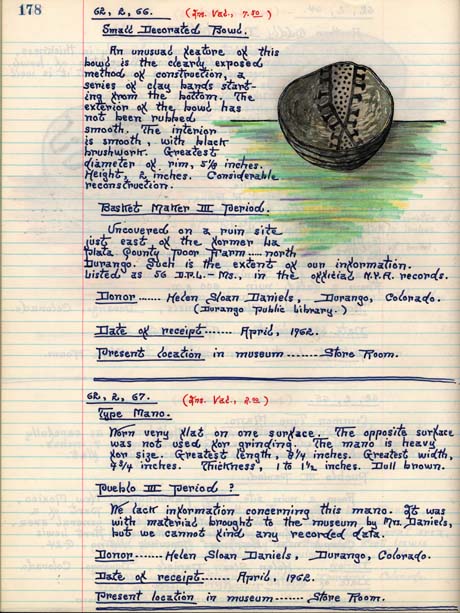 178
62, 2, 66. (Ins. Val., 7.50)
Small Decorated Bowl.
An unusual feature of this
bowl is the clearly exposed
method of construction, a
series of clay bands start-
ing from the bottom. The
exterior of the bowl has
not been rubbed
smooth. The interior
is smooth, with black
brushwork. Greatest
diameter of rim, 5 1/8 inches.
Height, 2 inches. Considerable
reconstruction.
Basket Maker III Period.
Uncovered on a ruin site
just east of the former La
Plata County Poor Farm ----- north
Durango. Such is the extent of our information.
Listed as 56 D.P.L.-Ms., in the official N.Y.A. records.
Donor ...... Helen Sloan Daniels, Durango, Colorado.
(Durango Public Library.)
Date of receipt ....... April, 1962.
Present location in museum ------- Store Room.
62, 2, 67. (Ins. Val., 2.00)
Type Mano.
Worn very flat on one surface. The opposite surface
was not used for grinding. The mano is heavy
for size. Greatest length, 8 1/4 inches. Greatest width,
4 3/4 inches. Thickness, 1 to 1 1/2 inches. Dull brown.
Pueblo III Period ?
We lack information concerning this mano. It was
with material brought to the museum by Mrs. Daniels,
but we cannot find any recorded data.
Donor ----- Helen Sloan Daniels, Durango, Colorado.
Date of receipt ------ April, 1962.
Present location in museum ------ Store Room.